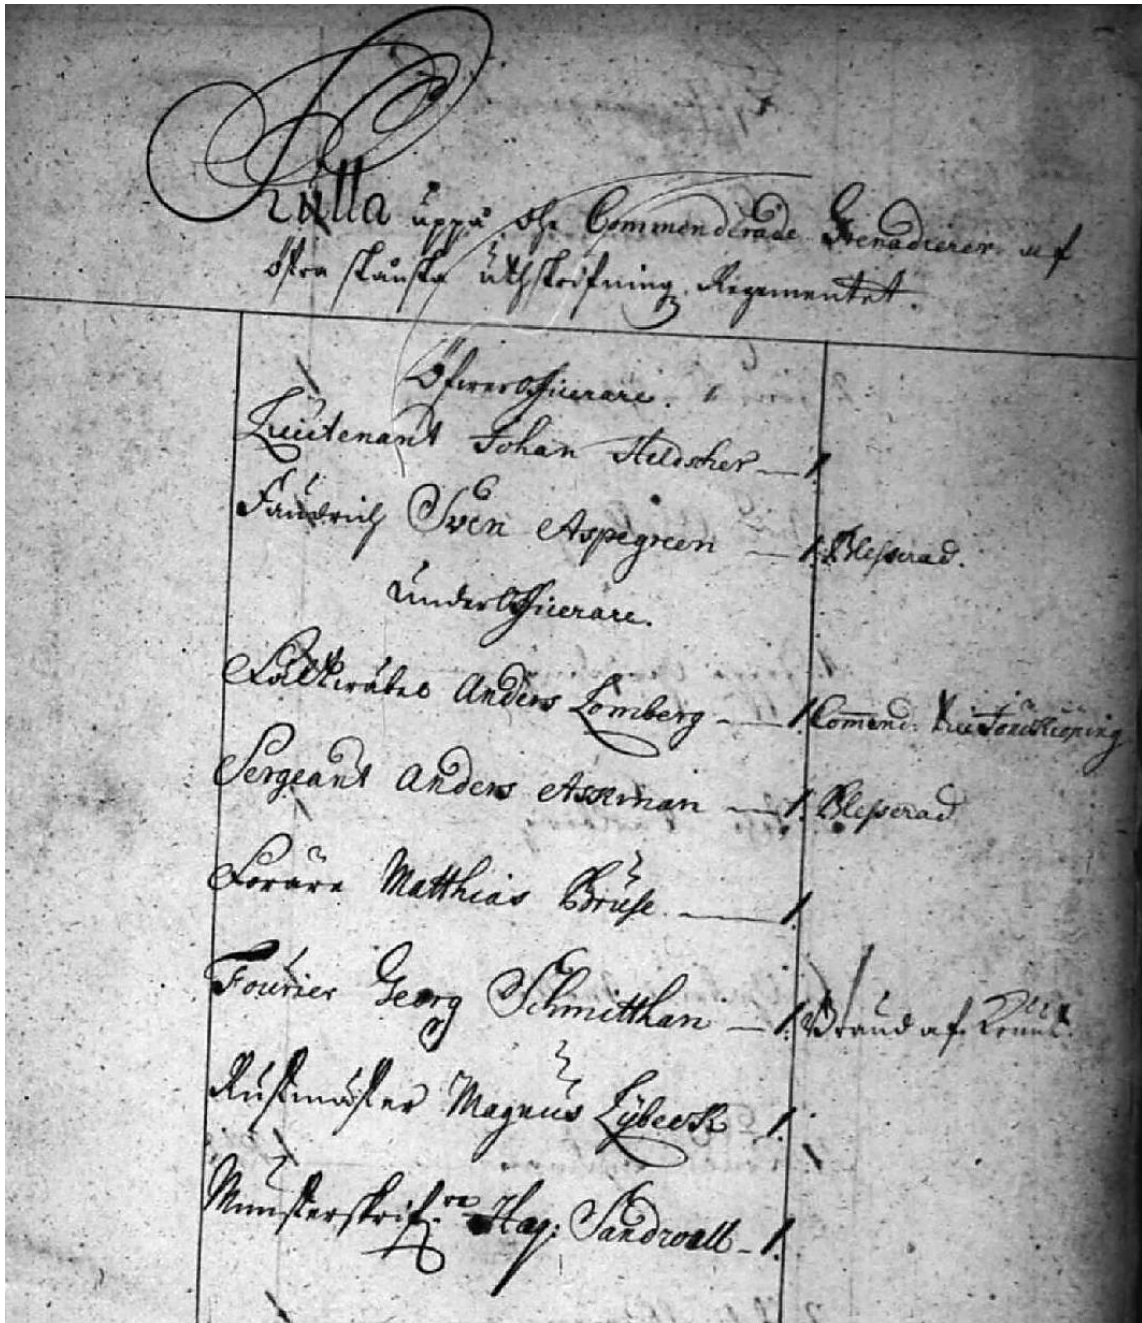 Rulla uppå the Commenderade Grenadierer af
östra skånska uthskrifning Regementet.
Öfwer Officerare.
Lieutenant Johan Hildscher — 1.
Faudrich Sven Aspegreen — 1. Blesserad.
Under Officerare.
Fältwäbel Anders Lomberg — 1. Commend. Jönskiöping
Sergeant Anders Assman — 1. Blesserad
Förare Matthias Bruse — 1.
Fourier Georg Schmitthan — 1. Bränd af Krut.
Rustmäster Magnus Lybeck 1.
Munsterskrif:re Hag: Sandwall - 1.